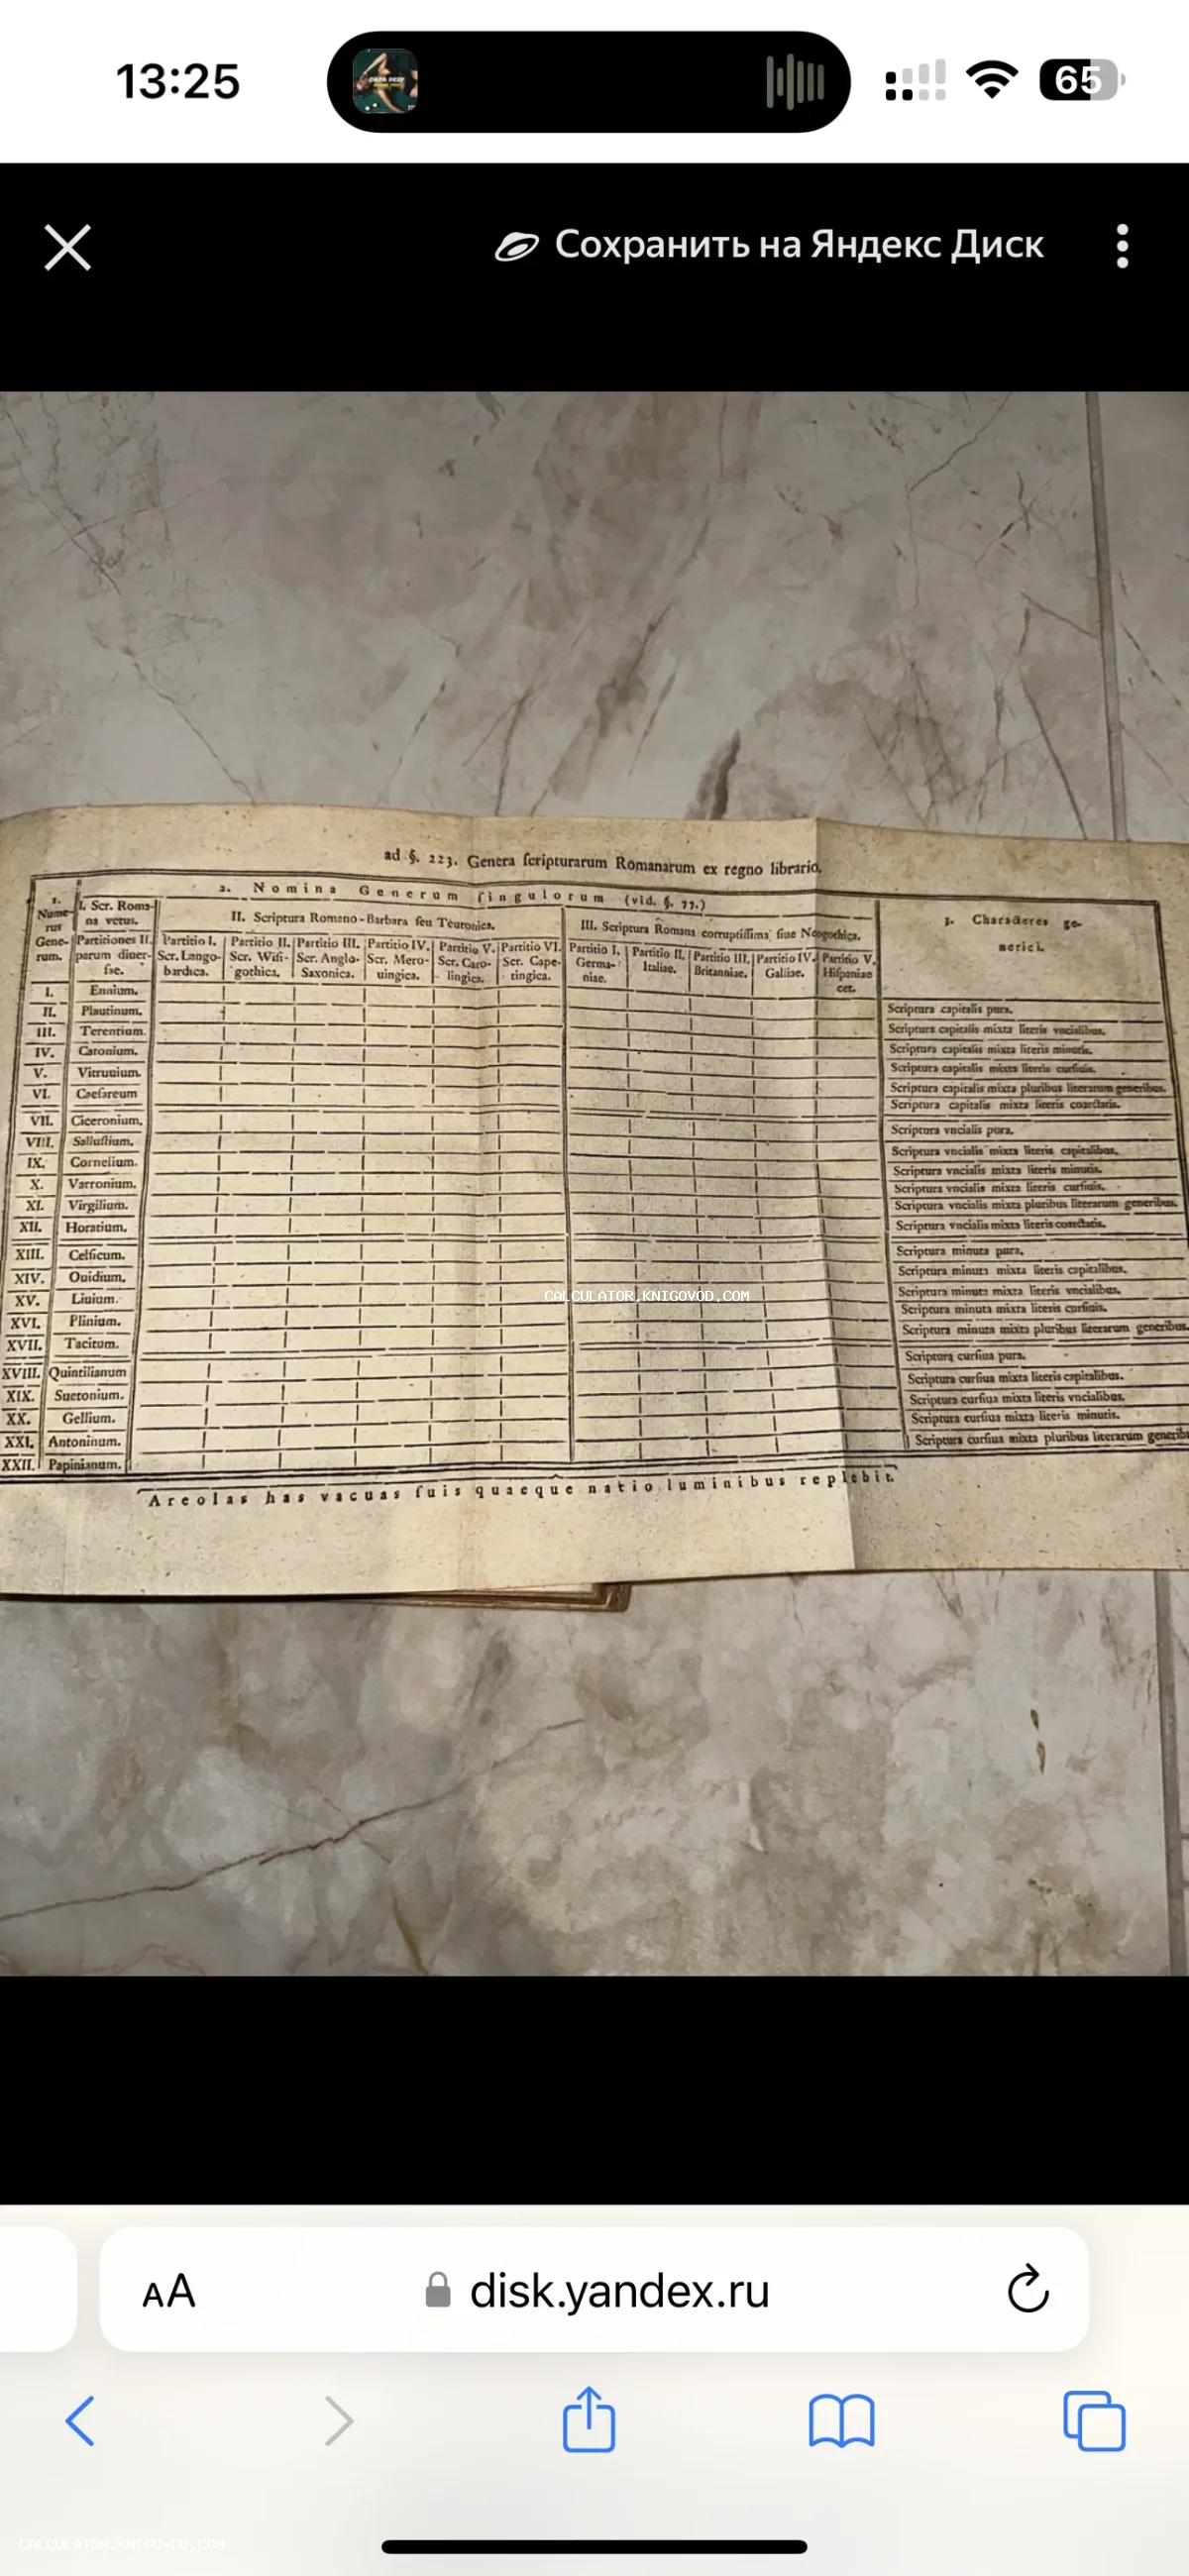 13:25
65
Сохранить на Яндекс Диск
ad §. 223. Genera ſcripturarum Romanarum ex regno librario.
1. Nume-rus Gene-rum.
2. Nomina Generum ſingulorum (vid. §. 77.)
3. Characteres ge-nerici.
I. Scr. Roma-na vetus.
II. Scriptura Romano-Barbara ſeu Teutonica.
III. Scriptura Romana corruptiſſima ſiue Neogothica.
Partitiones II. parum diuer-ſae.
Partitio I. Scr. Lango-bardica.
Partitio II. Scr. Wiſi-gothica.
Partitio III. Scr. Anglo-Saxonica.
Partitio IV. Scr. Mero-uingica.
Partitio V. Scr. Caro-lingica.
Partitio VI. Scr. Cape-tingica.
Partitio I. Germa-niae.
Partitio II. Italiae.
Partitio III. Britanniae.
Partitio IV. Galliae.
Partitio V. Hiſpaniae cet.
I. Ennium. Scriptura capitalis pura.
II. Plautinum. Scriptura capitalis mixta literis vncialibus.
III. Terentium. Scriptura capitalis mixta literis minutis.
IV. Catonium. Scriptura capitalis mixta literis curſiuis.
V. Vitruuium. Scriptura capitalis mixta pluribus literarum generibus.
VI. Caeſareum Scriptura capitalis mixta literis coarctatis.
VII. Ciceronium. Scriptura vncialis pura.
VIII. Salluſtium. Scriptura vncialis mixta literis capitalibus.
IX. Cornelium. Scriptura vncialis mixta literis minutis.
X. Varronium. Scriptura vncialis mixta literis curſiuis.
XI. Virgilium. Scriptura vncialis mixta pluribus literarum generibus.
XII. Horatium. Scriptura vncialis mixta literis coarctatis.
XIII. Celſicum. Scriptura minuta pura.
XIV. Ouidium. Scriptura minuta mixta literis capitalibus.
XV. Liuium. Scriptura minuta mixta literis vncialibus.
XVI. Plinium. Scriptura minuta mixta literis curſiuis.
XVII. Tacitum. Scriptura minuta mixta pluribus literarum generibus.
XVIII. Quintilianum Scriptura curſiua pura.
XIX. Suetonium. Scriptura curſiua mixta literis capitalibus.
XX. Gellium. Scriptura curſiua mixta literis vncialibus.
XXI. Antoninum. Scriptura curſiua mixta literis minutis.
XXII. Papinianum. Scriptura curſiua mixta pluribus literarum generib
Areolas has vacuas ſuis quaeque natio luminibus replebit.
CALCULATOR.KNIGOVOD.COM
AA disk.yandex.ru
CALCULATOR.KNIGOVOD.COM